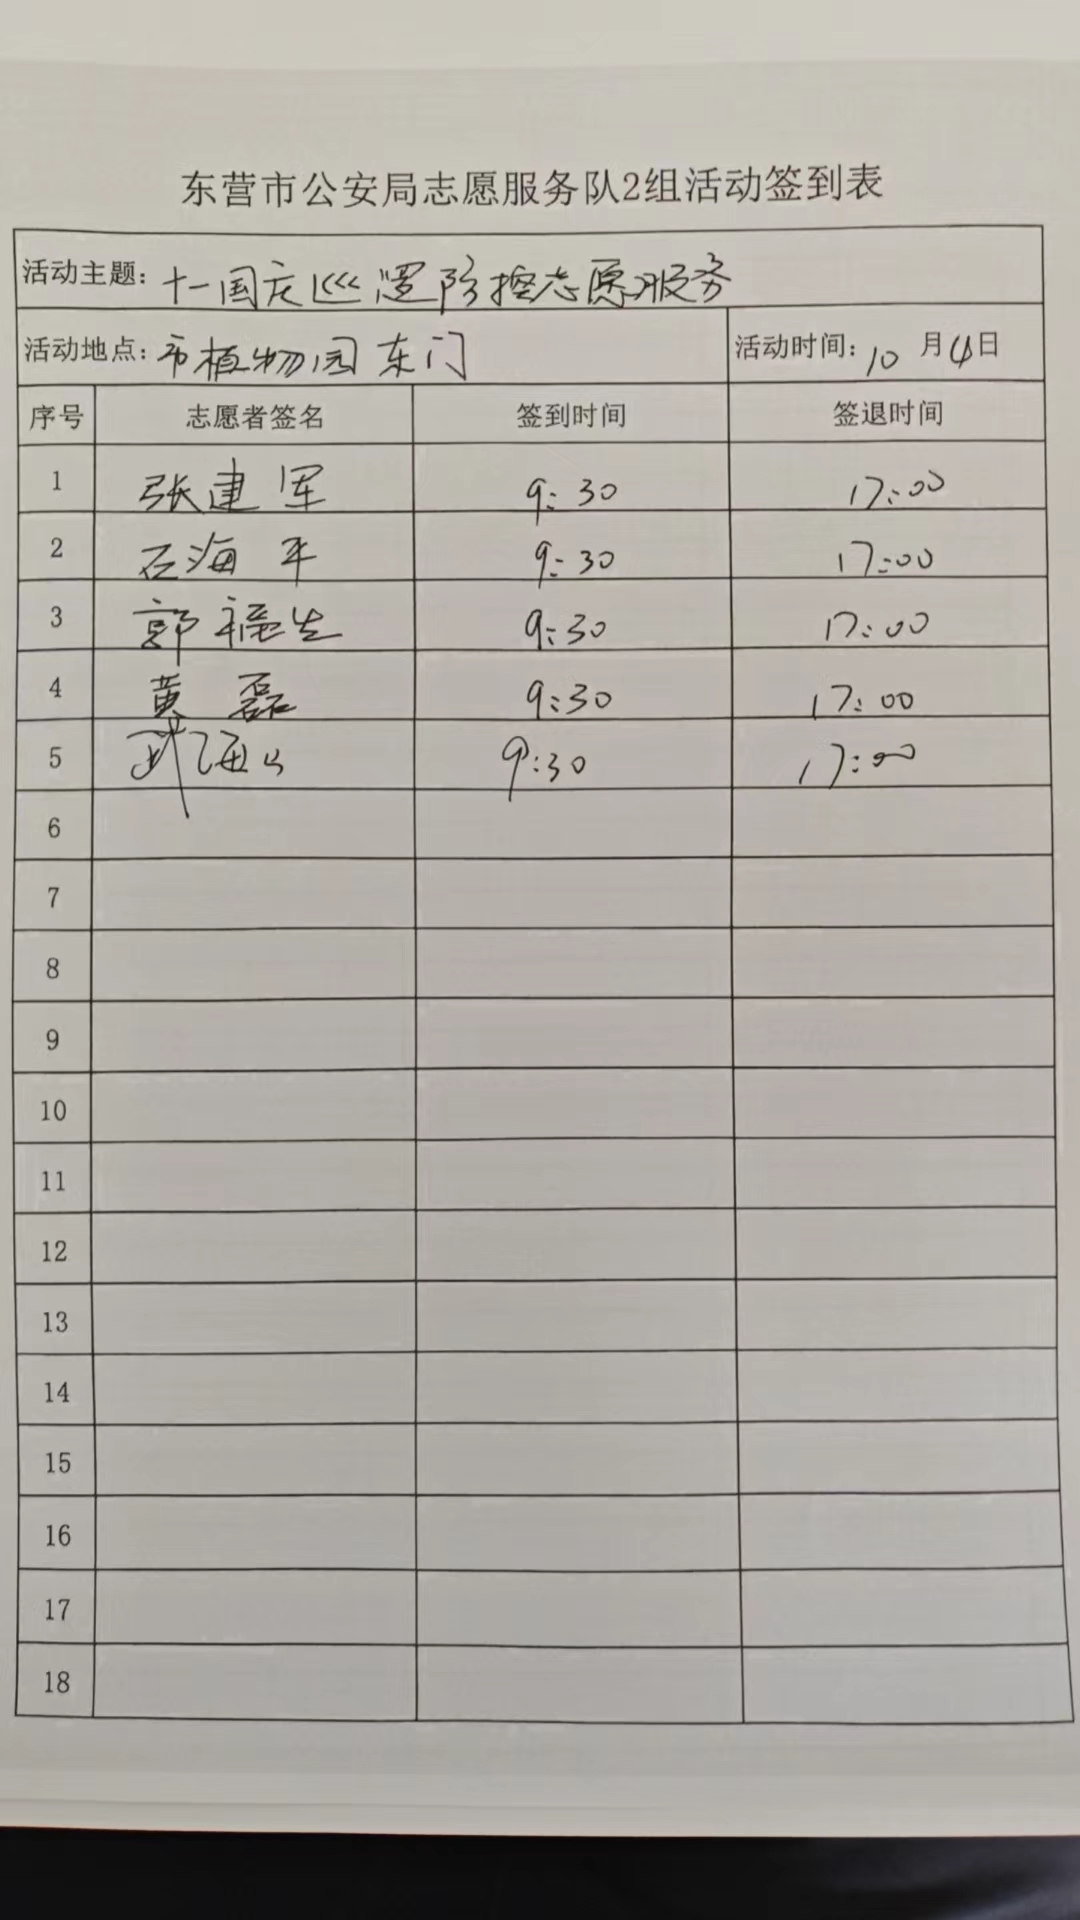 东营市公安局志愿服务队2组活动签到表
活动主题：十一国庆巡逻防控志愿服务
活动地点：市植物园东门 活动时间：10月4日
序号 志愿者签名 签到时间 签退时间
1 张建军 9:30 17:00
2 石海平 9:30 17:00
3 郭福生 9:30 17:00
4 黄磊 9:30 17:00
5 9:30 17:00
6
7
8
9
10
11
12
13
14
15
16
17
18